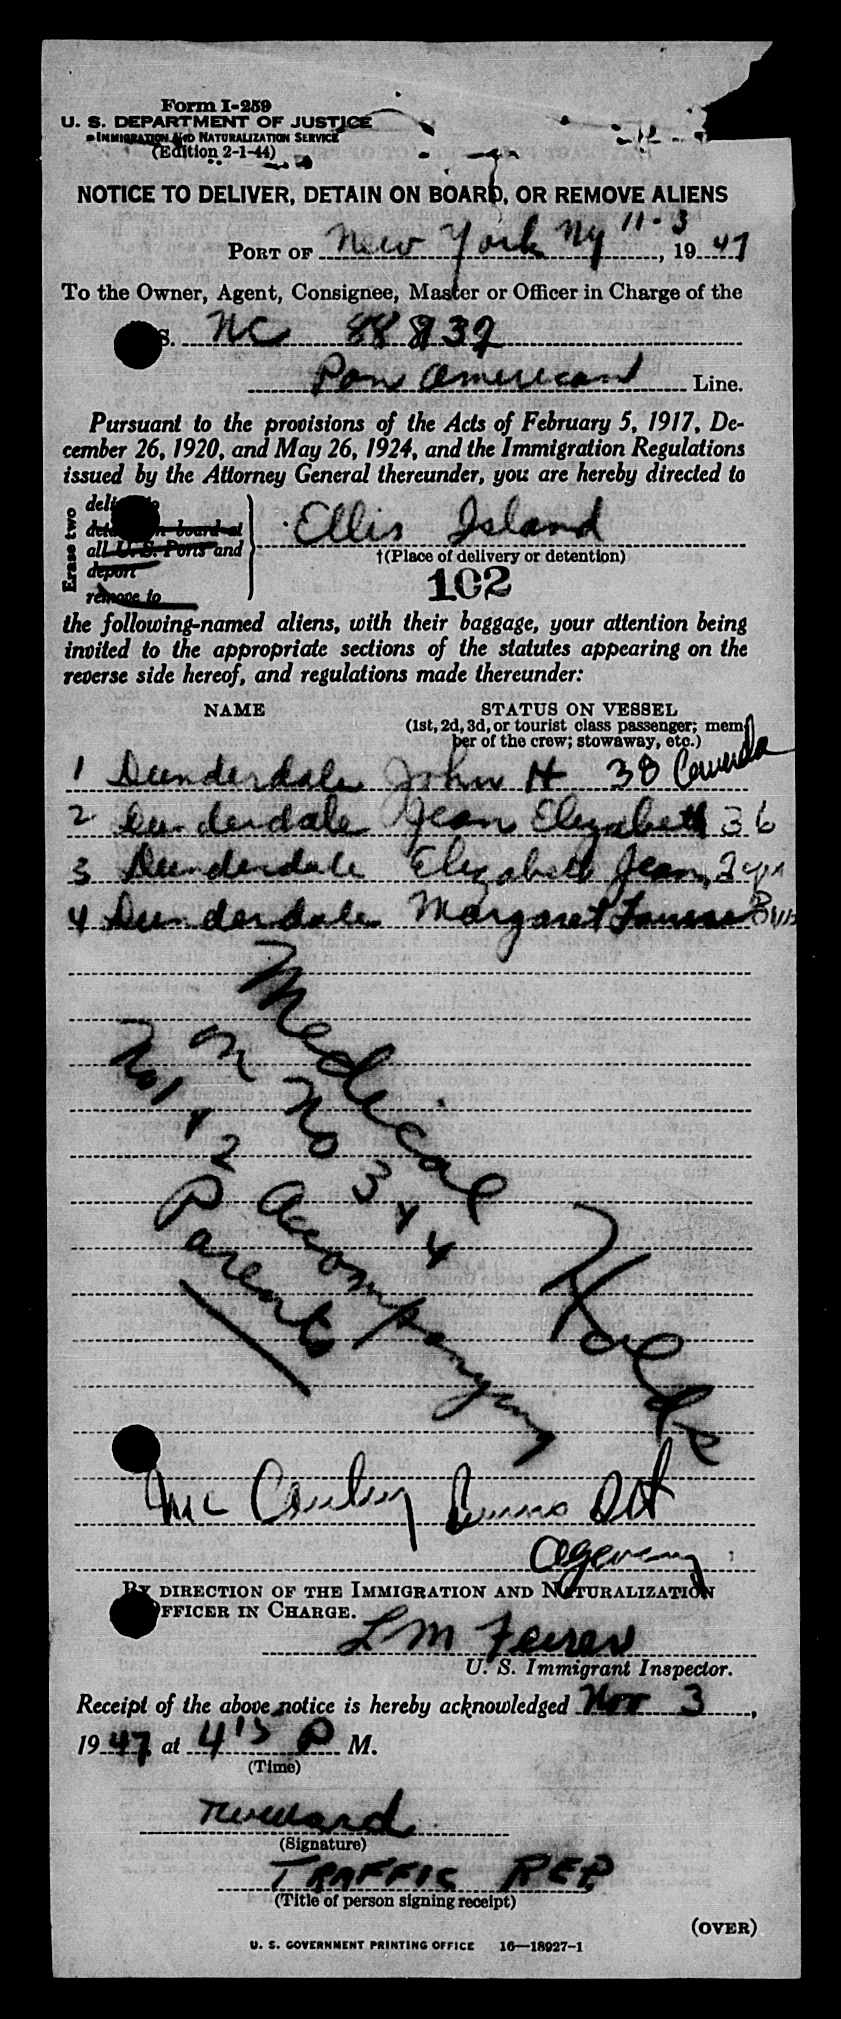 Form I-259
U. S. DEPARTMENT OF JUSTICE
IMMIGRATION AND NATURALIZATION SERVICE
(Edition 2-1-44)
NOTICE TO DELIVER, DETAIN ON BOARD, OR REMOVE ALIENS
PORT OF New York Ny 11-3, 1947
To the Owner, Agent, Consignee, Master or Officer in Charge of the
S. NC 88832
Pan American Line.
Pursuant to the provisions of the Acts of February 5, 1917, De-
cember 26, 1920, and May 26, 1924, and the Immigration Regulations
issued by the Attorney General thereunder, you are hereby directed to
Erase two
deliver to
detain on board at
all U. S. Ports and
deport
remove to
Ellis Island
†(Place of delivery or detention)
102
the following-named aliens, with their baggage, your attention being
invited to the appropriate sections of the statutes appearing on the
reverse side hereof, and regulations made thereunder:
NAME STATUS ON VESSEL
(1st, 2d, 3d, or tourist class passenger; mem-
ber of the crew; stowaway, etc.)
1 Dunderdale John H 38
2 Dunderdale Jean Elizabeth 36
3 Dunderdale Elizabeth Jean, 2 yrs
4 Dunderdale Margaret
Medical Holds
on No 3 + 4
No 1 + 2 Accompanying
Parents
BY DIRECTION OF THE IMMIGRATION AND NATURALIZATION
OFFICER IN CHARGE.
L M
U. S. Immigrant Inspector.
Receipt of the above notice is hereby acknowledged Nov 3,
1947 at 4 15 P M.
(Time)
(Signature)
TRAFFIC REP.
(Title of person signing receipt)
(OVER)
U. S. GOVERNMENT PRINTING OFFICE 16—18927-1